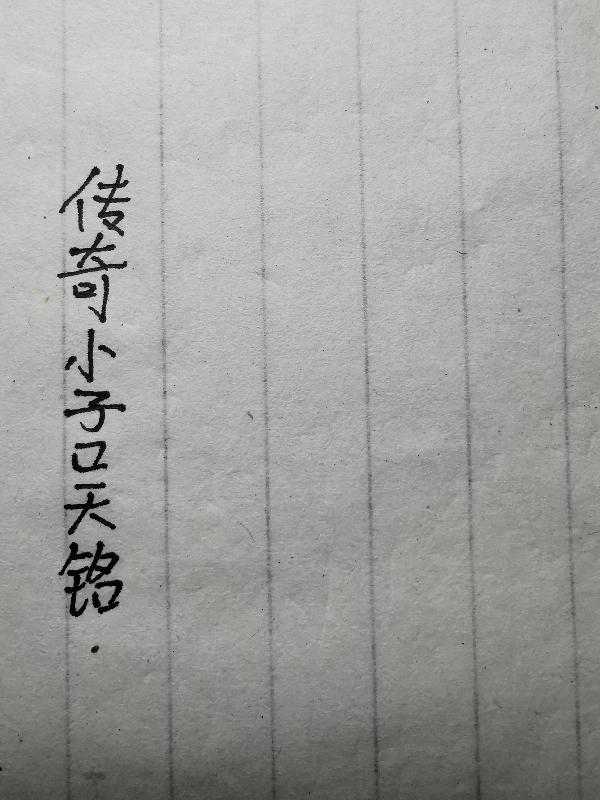 传奇小子口天铭.